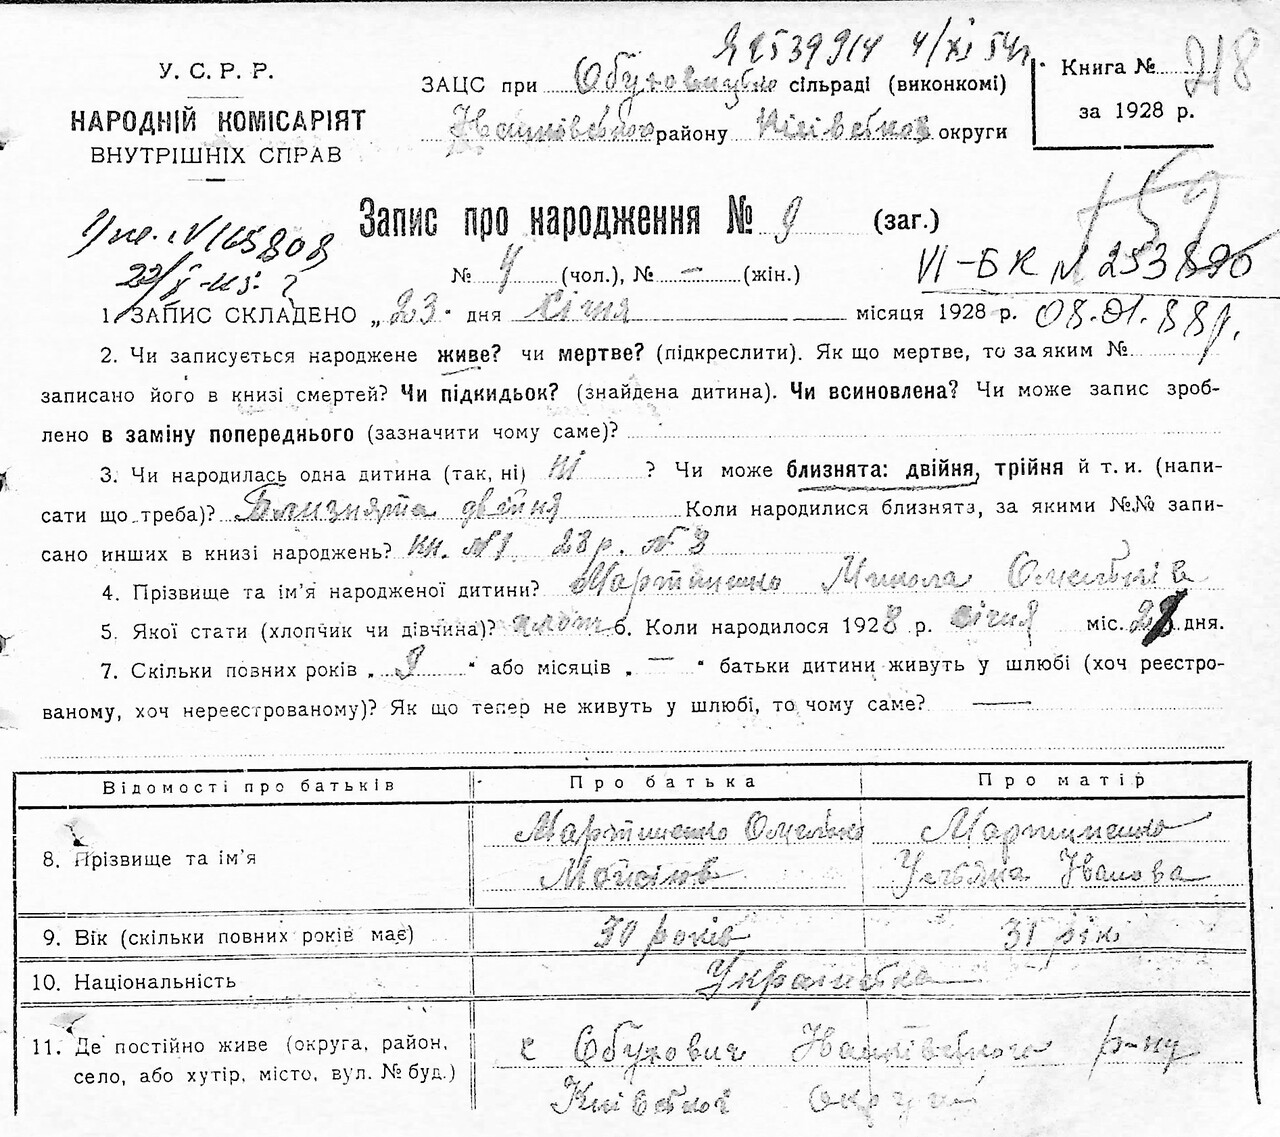 У. С. Р. Р.
НАРОДНІЙ КОМІСАРІЯТ
ВНУТРІШНІХ СПРАВ
4/XI 54р
ЗАЦС при Обуховицько сільраді (виконкомі)
Іванківського району Київської округи
Книга № 218
за 1928 р.
Запис про народження № 9 (заг.)
№ 4 (чол.), № — (жін.)
VI-БК N 253890
08.01.88р.
1. ЗАПИС СКЛАДЕНО „23" дня січня місяця 1928 р.
2. Чи записується народжене живе? чи мертве? (підкреслити). Як що мертве, то за яким №
записано його в книзі смертей? Чи підкидьок? (знайдена дитина). Чи всиновлена? Чи може запис зроб-
лено в заміну попереднього (зазначити чому саме)?
3. Чи народилась одна дитина (так, ні) ні ? Чи може близнята: двійня, трійня й т. и. (напи-
сати що треба)? Близнята двійня Коли народилися близнята, за якими №№ запи-
сано инших в книзі народжень? кн. №1 28 р. № 8
4. Прізвище та ім'я народженої дитини? Мартиненко Микола Омельків
5. Якої стати (хлопчик чи дівчина)? хлоп 6. Коли народилося 1928 р. січня міс. дня.
7. Скільки повних років „ 9 " або місяців „ — " батьки дитини живуть у шлюбі (хоч реєстро-
ваному, хоч нереєстрованому)? Як що тепер не живуть у шлюбі, то чому саме? —
Відомості про батьків Про батька Про матір
8. Прізвище та ім'я Мартиненко Омелько Мойсіїв Мартиненко Уляна Іванова
9. Вік (скільки повних років має) 30 років 31 рік
10. Національність Українська
11. Де постійно живе (округа, район, село, або хутір, місто, вул. № буд.) с Обуховичі Іванківського р-ну
Київської округи